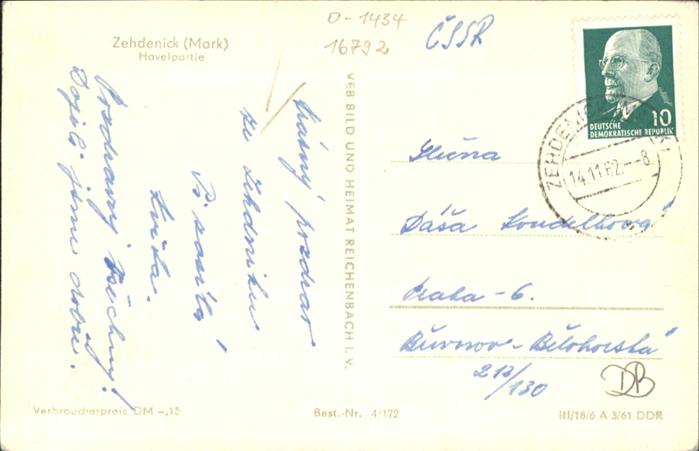 Zehdenick (Mark)
Havelpartie
0-1434
16792
ČSSR
DEUTSCHE
DEMOKRATISCHE REPUBLIK
10
ZEHDENICK
14.11.62.--8
Krásný pozdrav
ze Zehdeniku
Ti zasílá
Květa.
Pozdravuj všechny!
Dojeli jsme dobře.
VEB BILD UND HEIMAT REICHENBACH I. V.
Slečna
Dáša
Praha - 6.
Břevnov - Bělohorská
213/130
DB
Verbraucherpreis DM -,15
Best.-Nr. 4/172
III/18/6 A 3/61 DDR